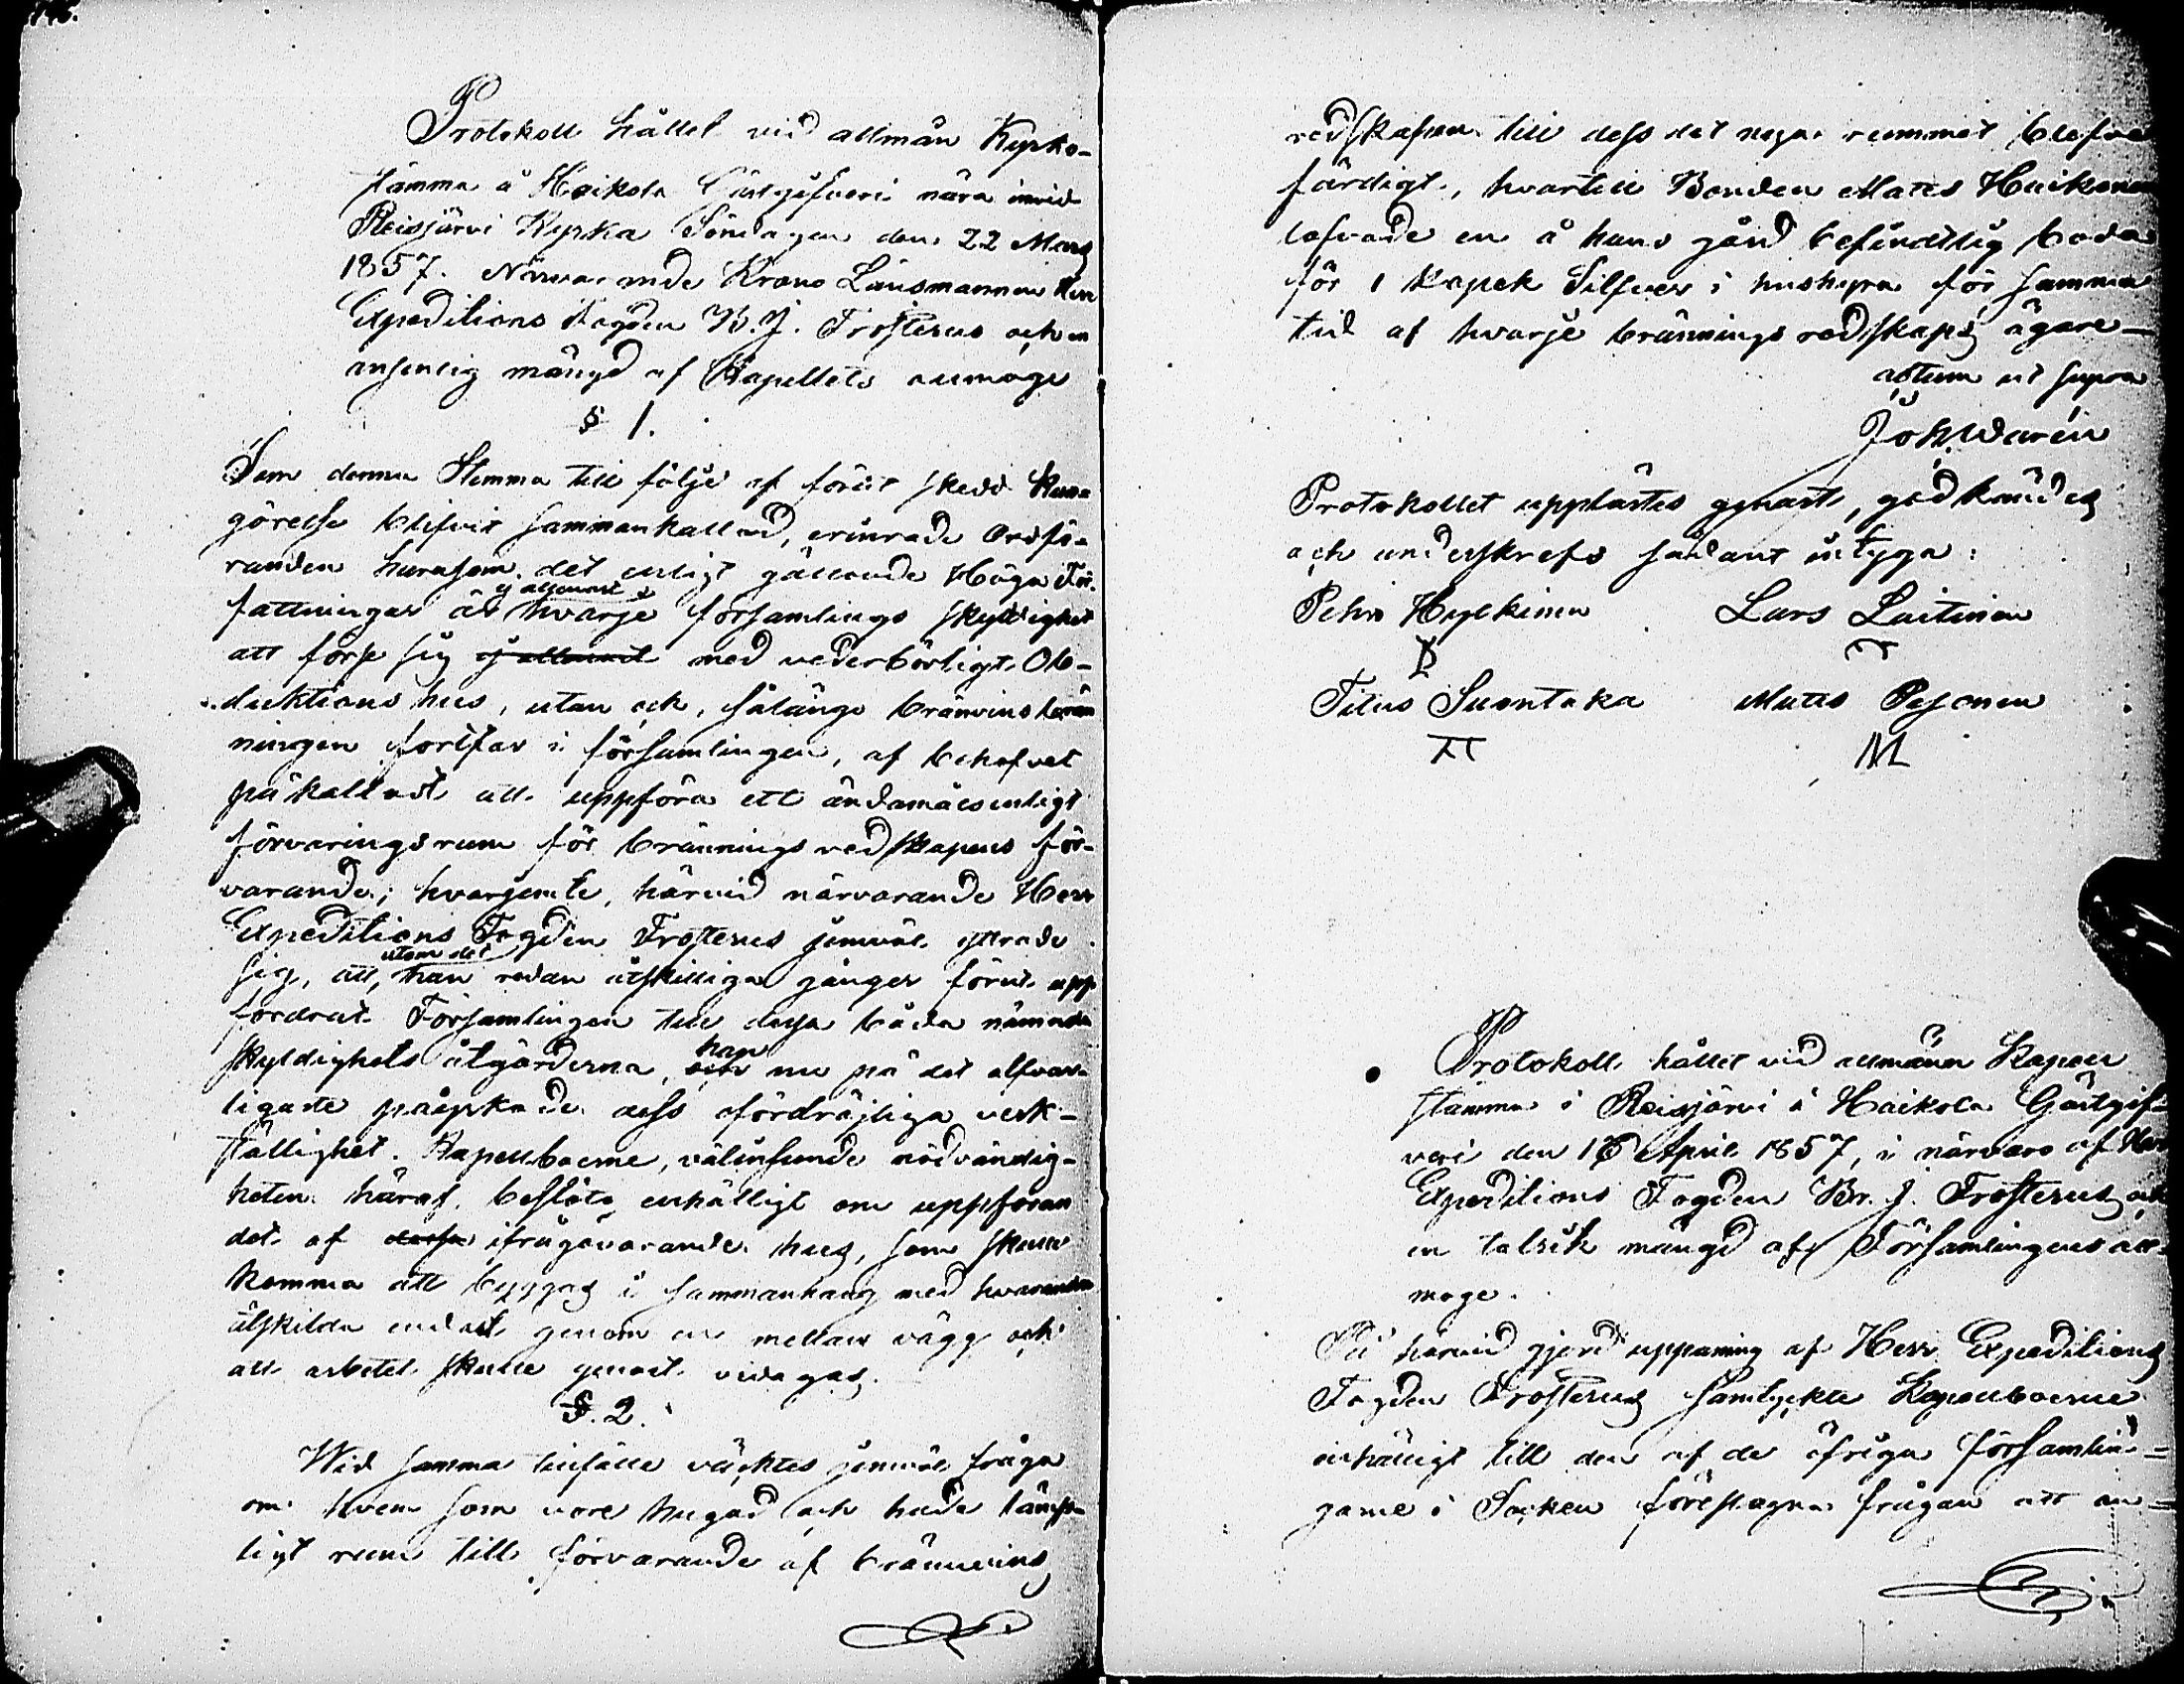 Protokoll hållet vid allmän Kyrko-
stämma å Haikola Gästgifveri nära invid
Reisjärvi Kyrka Söndagen den 22 Mars
1857. Närvarande Krono Länsmannen Herr
Expeditions Fogden B. J. Frosterus och en
ansenlig mängd af Kapellets allmoge
§ 1.
Som denna Stemma till följe af förut skedd Kun-
görelse blifvit sammankallad, erinrade Ordfö-
randen hurusom det enligt gällande Höga För-
fattningar är ej allenast hvarje församlings skyldighet
att förse sig ej allenast med vederbörligt Ob-
duktions hus, utan ock, sålänge bränvinsbrän
ningen fortfar i församlingen, af behofvet
påkalladt att uppföra ett ändamålsenligt
förvaringsrum för bränningsredskapens för-
varande; hvarjemte, härvid närvarande Herr
Expeditions Fogden Frosterus jemväl yttrade
sig, att, utom det han redan åtskilliga gånger förut upp
fordrat Församlingen till dessa båda nämnda
skyldighets åtgärderna, han nu på det alfvar-
ligaste påyrkade dess ofördröjliga verk-
ställighet. Kapellboerne, välinseende nödvändig-
heten häraf, beslöto enhälligt om uppföran
det af dessa ifrågavarande hus, som skulle
komma att byggas i sammanhang med hvarandra
åtskilda endast genom en mellan vägg och
att arbetet skulle genast vidtagas.
§. 2.
Wid samma tillfälle väcktes jemväl fråga
om hvem som vore hugad och hade lämp-
ligt rum till förvarande af brännvins
redskapen till dess det nya rummet blefve
färdigt, hvartill Bonden Matts Haikonen
lofvade en å hans gård befindtlig boda
för 1 kopek Silfver i hushyra för samma
tid af hvarje brännings redskaps ägare –
actum ut supra
Joh. Warén
Protokollet upplästes genast, godkändes
och underskrefs sådant intyga:
Pehr Hylkinen Lars Laitinen
Titus Suontaka Matts Pesonen
M
Protokoll hållet vid allmänn Kapell
stämma i Reisjärvi å Haikola Gästgif-
veri den 16 April 1857, i närvaro af Herr
Expeditions Fogden Br. J. Frosterus och
en talrik mängd af Församlingens all-
moge.
På härvid gjord uppaning af Herr Expeditions
Fogden Frosterus samtyckte Kapellboerne
enhälligt till den af de öfriga församlin-
garne i Socken föreslagna frågan att an-